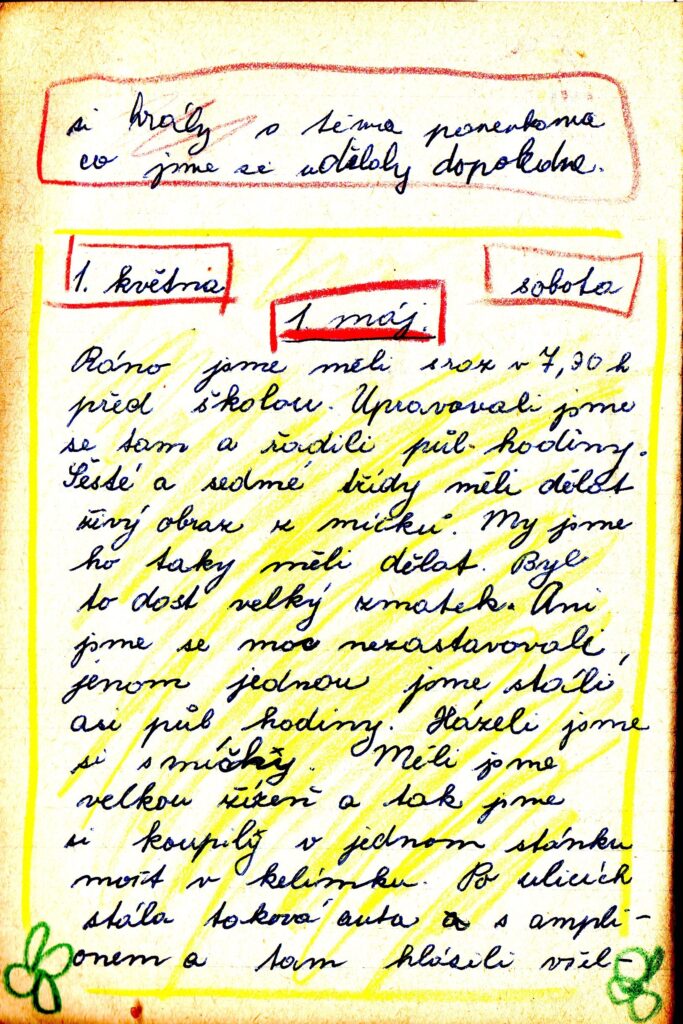 si hrály s těma panenkama
co jsme si udělaly dopoledne.
1. května
sobota
1. máj.
Ráno jsme měli sraz v 7,30 h
před školou. Upravovali jsme
se tam a řadili půl hodiny.
Šesté a sedmé třídy měli dělat
živý obraz z míčků. My jsme
ho taky měli dělat. Byl
to dost velký zmatek. Ani
jsme se moc nezastavovali,
jenom jednou jsme stáli
asi půl hodiny. Házeli jsme
si s míčky. Měli jsme
velkou žízeň a tak jsme
si koupily v jednom stánku
mošt v kelímku. Po ulicích
stála taková auta s ampli-
onem a tam hlásili všel-